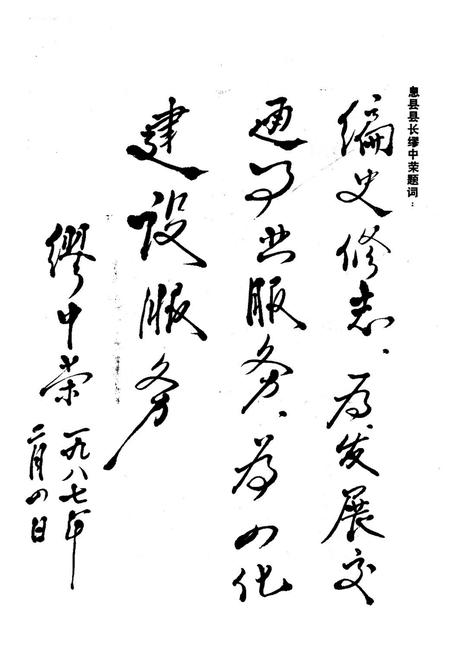 息县县长缪中荣题词：
编史修志、为发展交
通事业服务、为四化
建设服务
缪中荣
一九八七年
二月四日